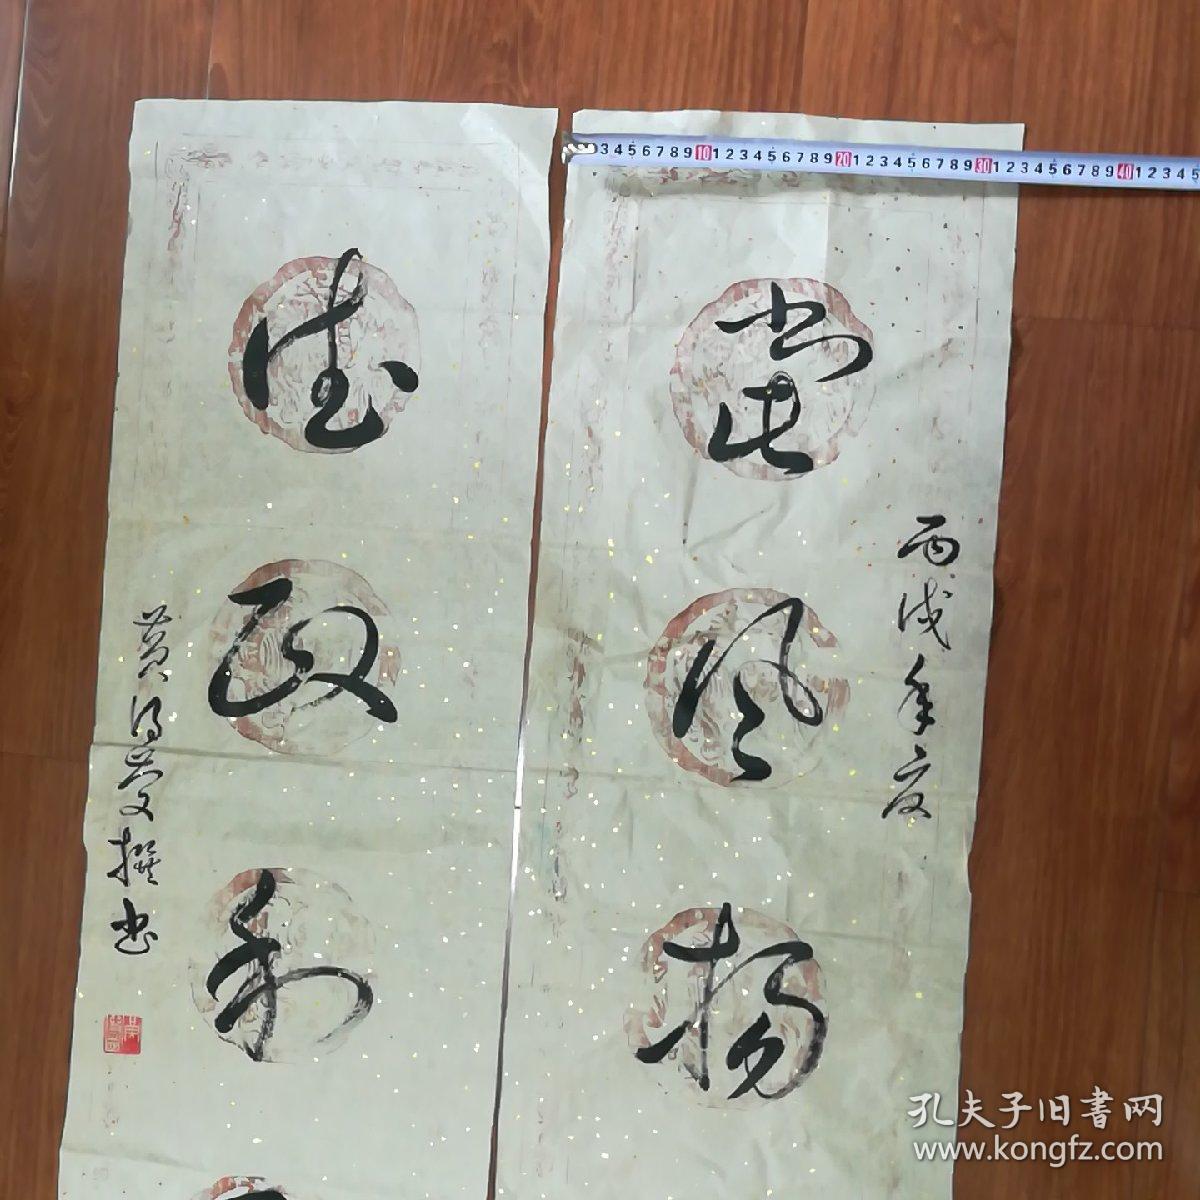 党风扬
丙戌年夏
德政和
撰书
3 4 5 6 7 8 9 10 1 2 3 4 5 6 7 8 9 20 1 2 3 4 5 6 7 8 9 30 1 2 3 4 5 6 7 8 9 40 1 2 3 4 5
孔夫子旧書网
www.kongfz.com